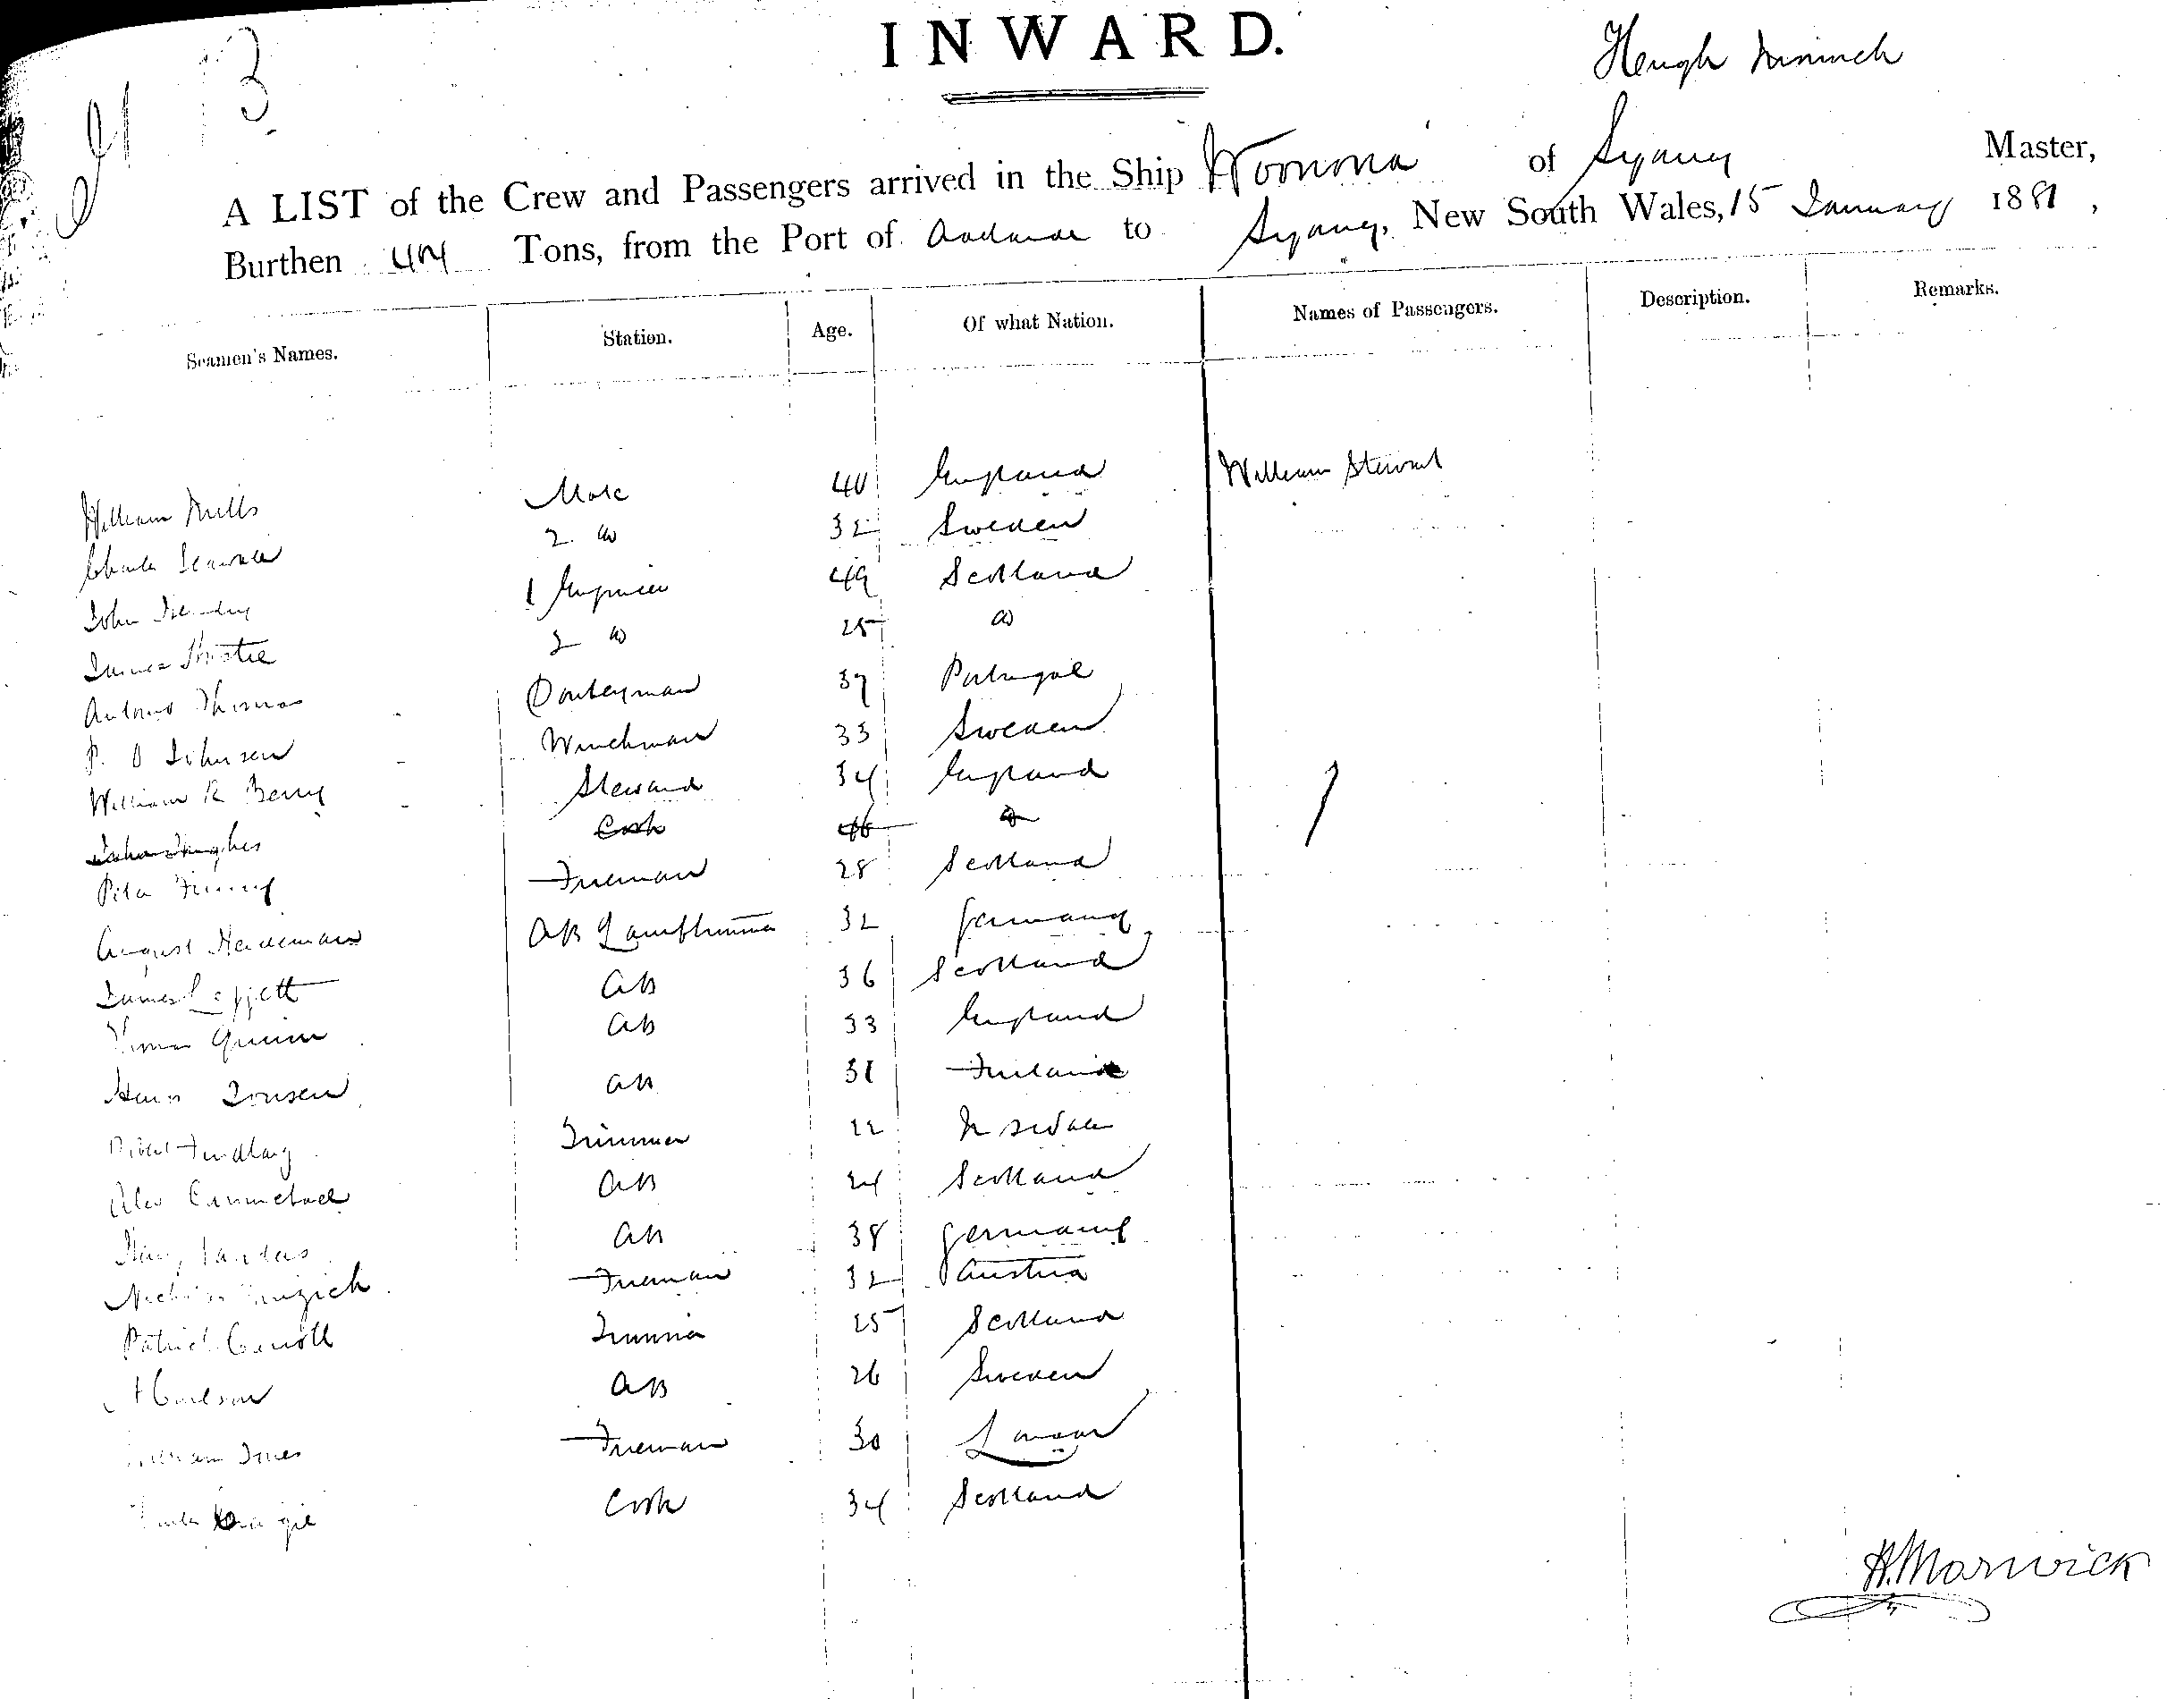 INWARD.
13
Hugh
A LIST of the Crew and Passengers arrived in the Ship Woonona of Sydney Master,
Burthen Tons, from the Port of Adelaide to Sydney, New South Wales, 15 January 1881,
Seamen's Names. Station. Age. Of what Nation. Names of Passengers. Description. Remarks.
William Mills Mate 40 England William Stewart
Charles 2. do 32 Sweden
John 1 Engineer 49 Scotland
James 2 do 25 do
Antonio Thomas Donkeyman 37 Portugal
P. O Johnsen Winchman 33 Sweden
William R Berry Steward 34 England
John Hughes Cook 46 do
Peter Fireman 28 Scotland 1
August Heideman AB Lamptrimmer 32 Germany
James AB 36 Scotland
Quinn AB 33 England
Jonsen AB 31 Finland
Robert Findlay Trimmer 22 N S Wales
Alex Carmichael AB 24 Scotland
AB 38 Germany
Nicholas Fireman 32 Austria
Patrick Carroll Trimmer 25 Scotland
A Carlson AB 26 Sweden
William Jones Fireman 30
Cook 34 Scotland
H. Marwick